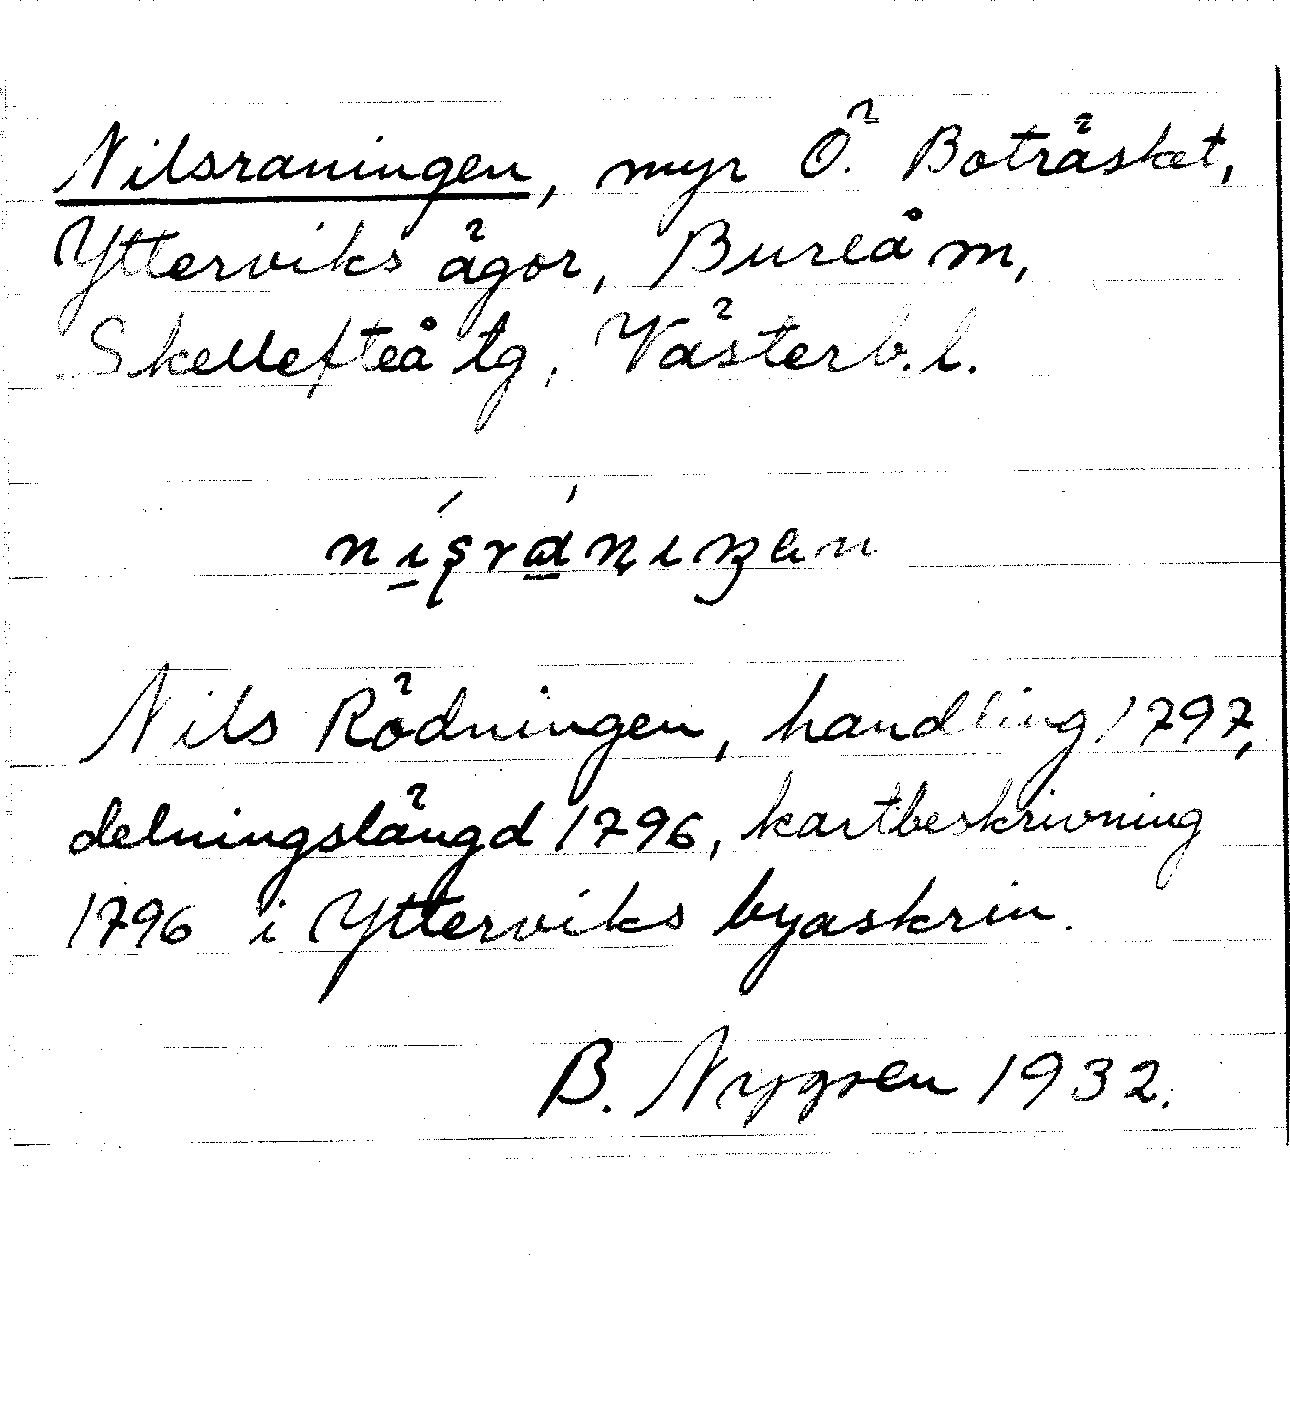 Nilsraningen, myr Ö. Boträsket,
Ytterviks ägor, Bureå m,
Skellefteå tg, Västerb. l.
Nils Rödningen, handling 1797,
delningslängd 1796, kartbeskrivning
1796 i Ytterviks byaskrin.
B. Nygren 1932.